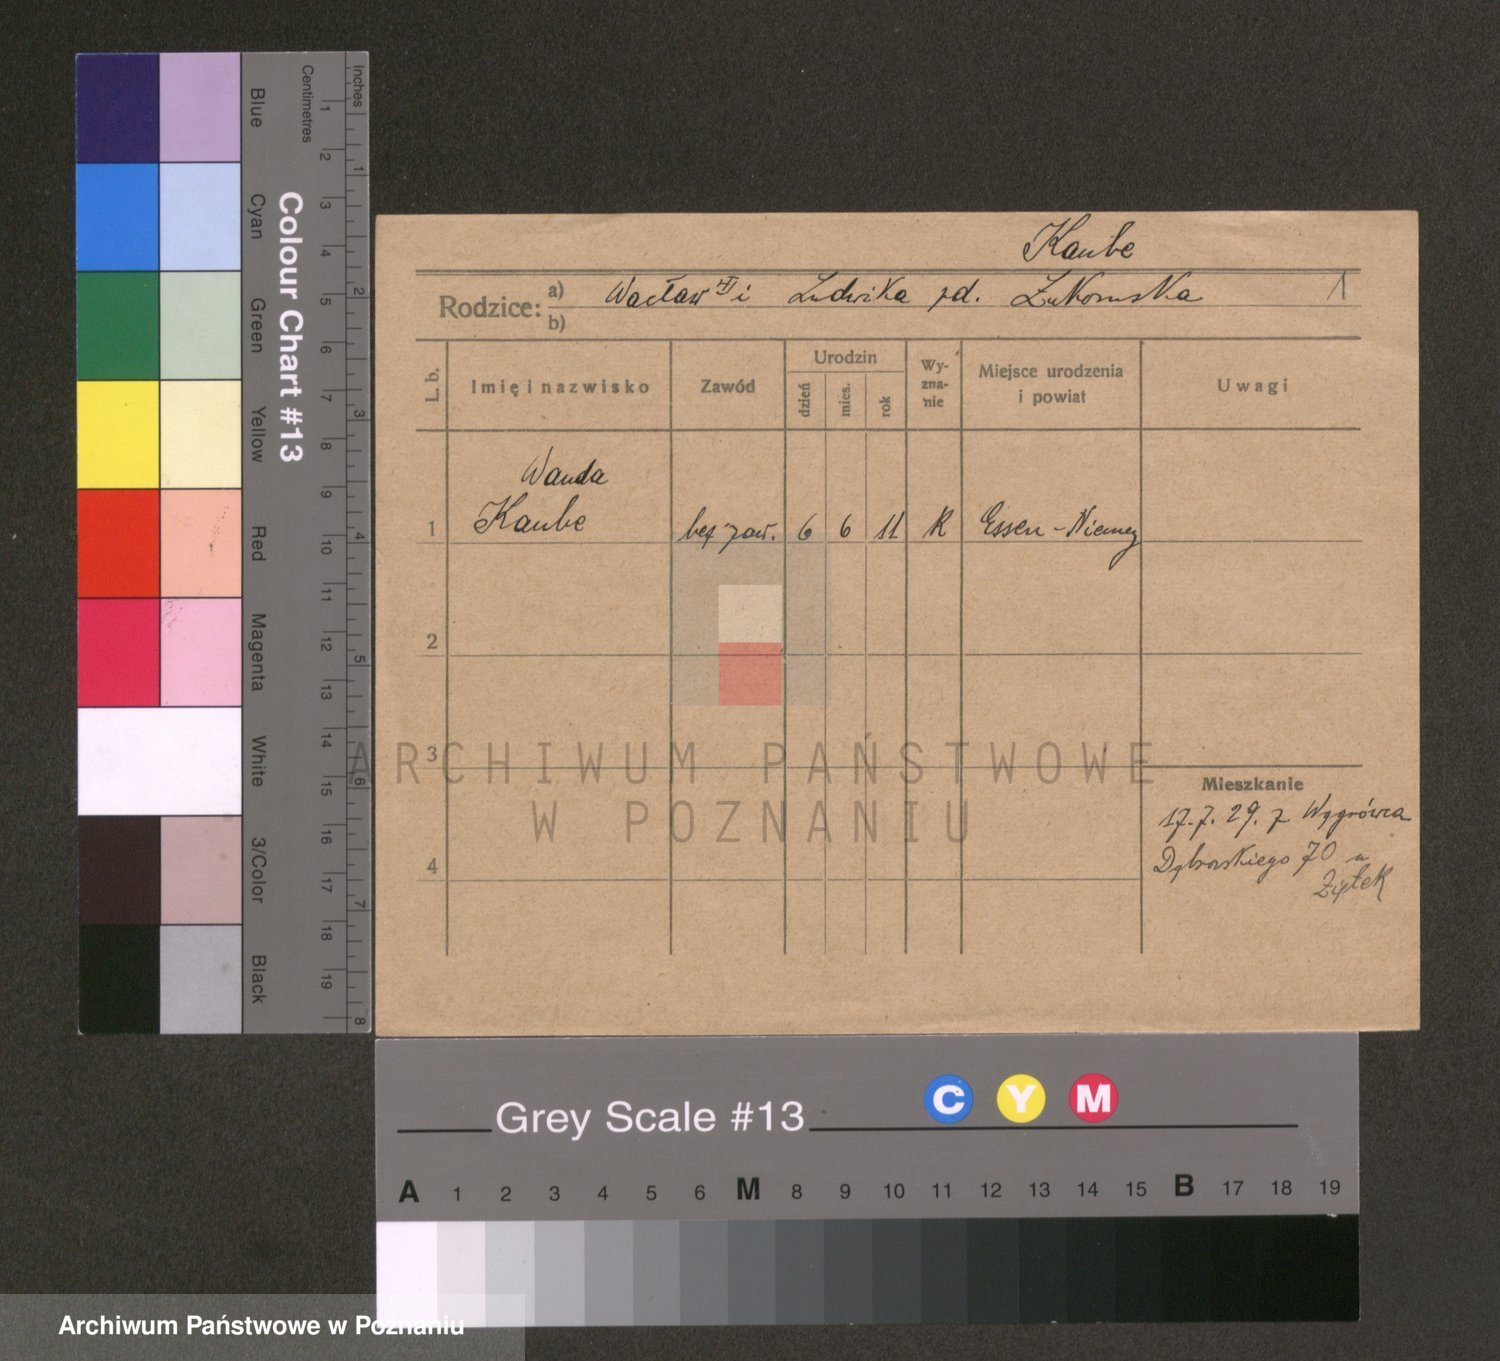 Blue
Cyan
Green
Yellow
Red
Magenta
White
3/Color
Black
Colour Chart #13
Centimetres
1 2 3 4 5 6 7 8 9 10 11 12 13 14 15 16 17 18 19
Inches
1 2 3 4 5 6 7 8
Kaube
Rodzice: a) Wacław i Ludwika zd. Żukowska 1
b)
L. b. Imię i nazwisko Zawód Urodzin dzień mies. rok Wy-zna-nie Miejsce urodzenia i powiat Uwagi
Wanda
1 Kaube bez zaw. 6 6 11 R Essen - Niemcy
2
3
ARCHIWUM PAŃSTWOWE
Mieszkanie
17.7.29. z Wągrówca
W POZNANIU
4 Dąbrowskiego 70 u
Ziętek
Grey Scale #13 C Y M
A 1 2 3 4 5 6 M 8 9 10 11 12 13 14 15 B 17 18 19
Archiwum Państwowe w Poznaniu